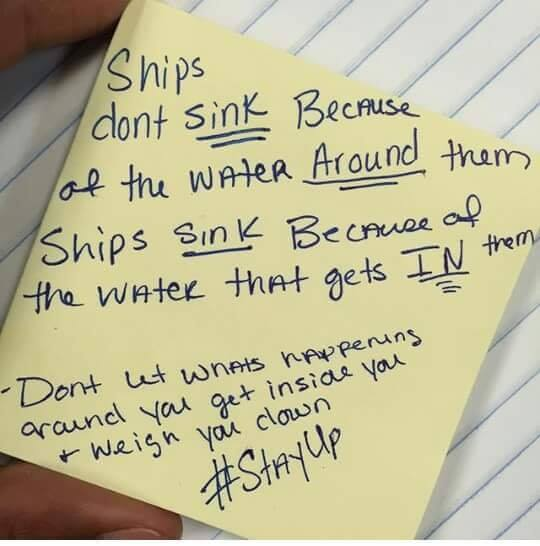 Ships
dont sink Because
of the WAteR Around them
Ships Sink Because of
the WAteR thAt gets IN them
- Dont let whats hAppening
around you get inside you
+ weigh you down
#StAyUp